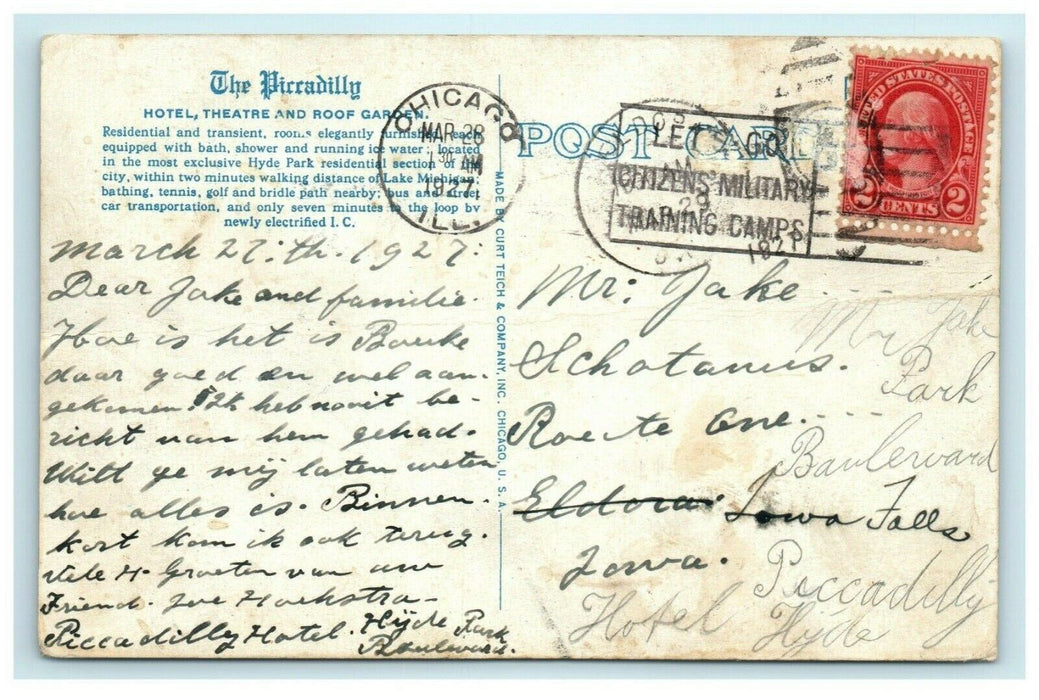 The Piccadilly
HOTEL, THEATRE AND ROOF GARDEN.
Residential and transient, rooms elegantly furnished, each
equipped with bath, shower and running ice water; located
in the most exclusive Hyde Park residential section of the
city, within two minutes walking distance of Lake Michigan;
bathing, tennis, golf and bridle path nearby; bus and street
car transportation, and only seven minutes to the loop by
newly electrified I. C.
CHICAGO
MAR 28
AM
1927
ILL.
POST CARD
LET'S GO
CITIZENS MILITARY
TRAINING CAMPS
UNITED STATES POSTAGE
2 CENTS 2
MADE BY CURT TEICH & COMPANY, INC. CHICAGO, U. S. A.
March 27.th. 1927.
Dear Jake and familie.
Hoe is het is Bouke
daar goed en wel aan-
gekomen. Ik heb nooit be-
richt van hem gehad.
Wilt ge mij laten weten
hoe alles is. Binnen-
kort kom ik ook terug.
Vele H. Groeten van uw
Friend. Joe Hoekstra-
Piccadilly Hotel. Hyde Park
Boulevard.
Mr. Jake
Schotanus.
Route One.
Eldora. Iowa Falls
Iowa.
Mr Jake
Park
Baulerward
Piccadilly
Hotel Hyde